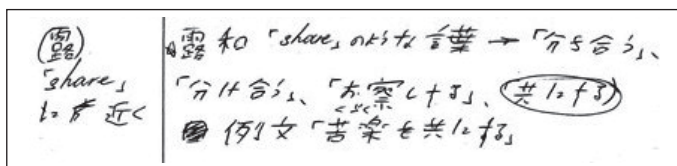 (露)
「share」
に近く
露和「share」のような言葉→「分ち合う」、
「分け合う」、「お察しする」、共にする
例文「苦楽を共にする」